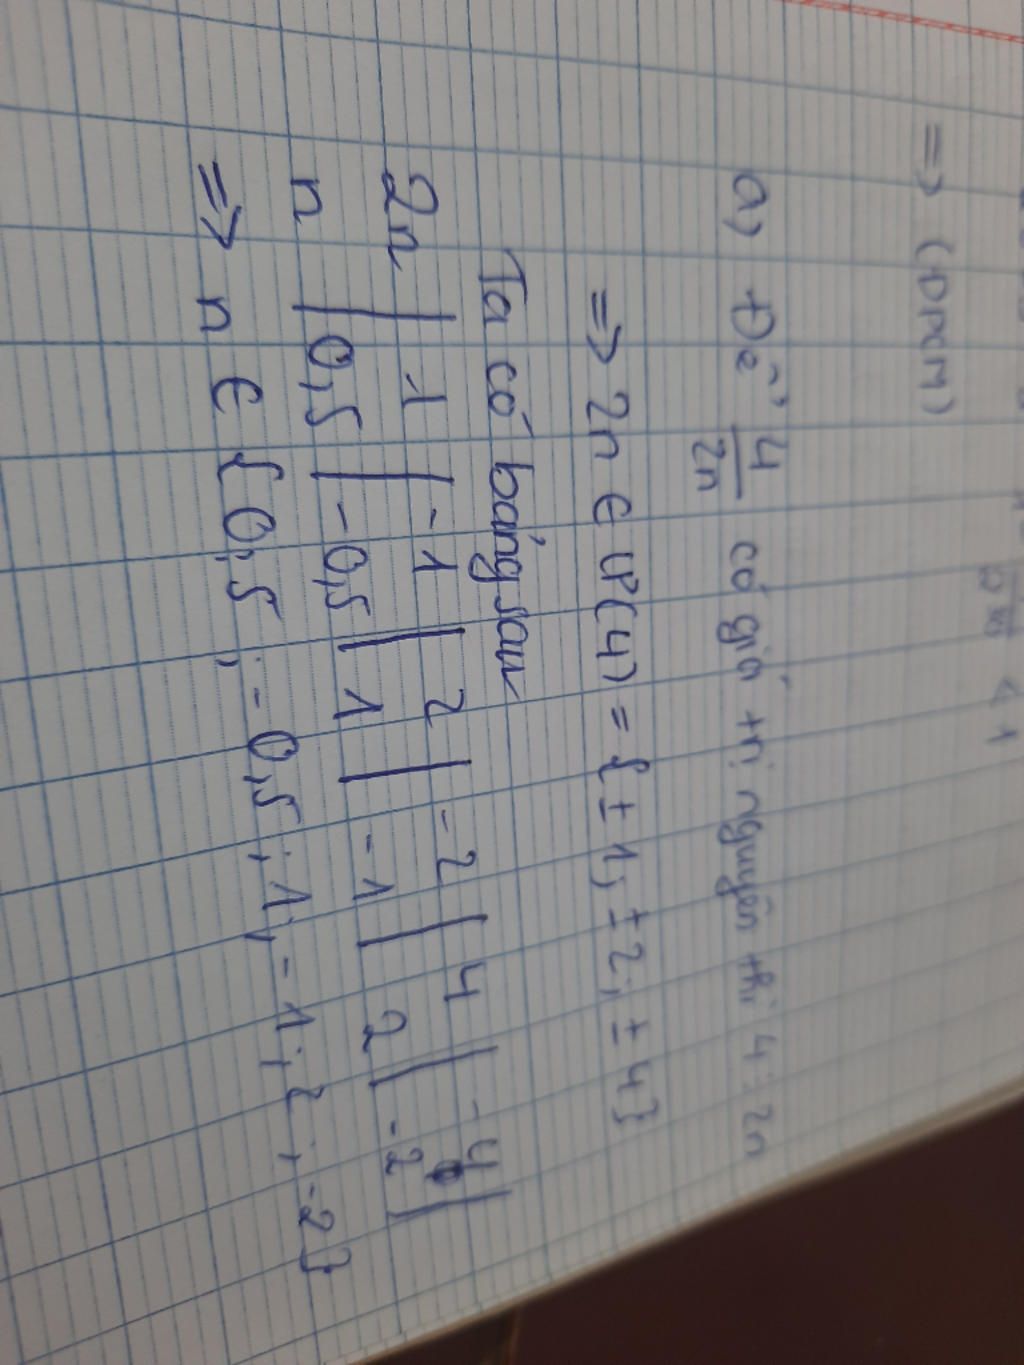 => (DPCM)
a) Để 4/2n có giá trị nguyên thì 4 ⋮ 2n
=> 2n ∈ Ư(4) = {±1; ±2; ±4}
Ta có bảng sau
2n | 1 | -1 | 2 | -2 | 4 | -4 |
n | 0,5 | -0,5 | 1 | -1 | 2 | -2 |
=> n ∈ {0,5; -0,5; 1; -1; 2; -2}